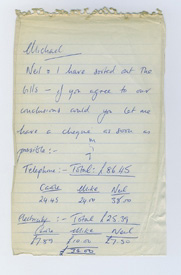 Michael
Nel & I have sorted out the
bills - if you agree to our
conclusions would you let me
have a cheque as soon as
possible :-
Telephone :- Total: £86.45
Mike Nel
24.45 24.00 38.00
Electricity :- Total £25.39
Mike Nel
7.89 £10.00 £7.50